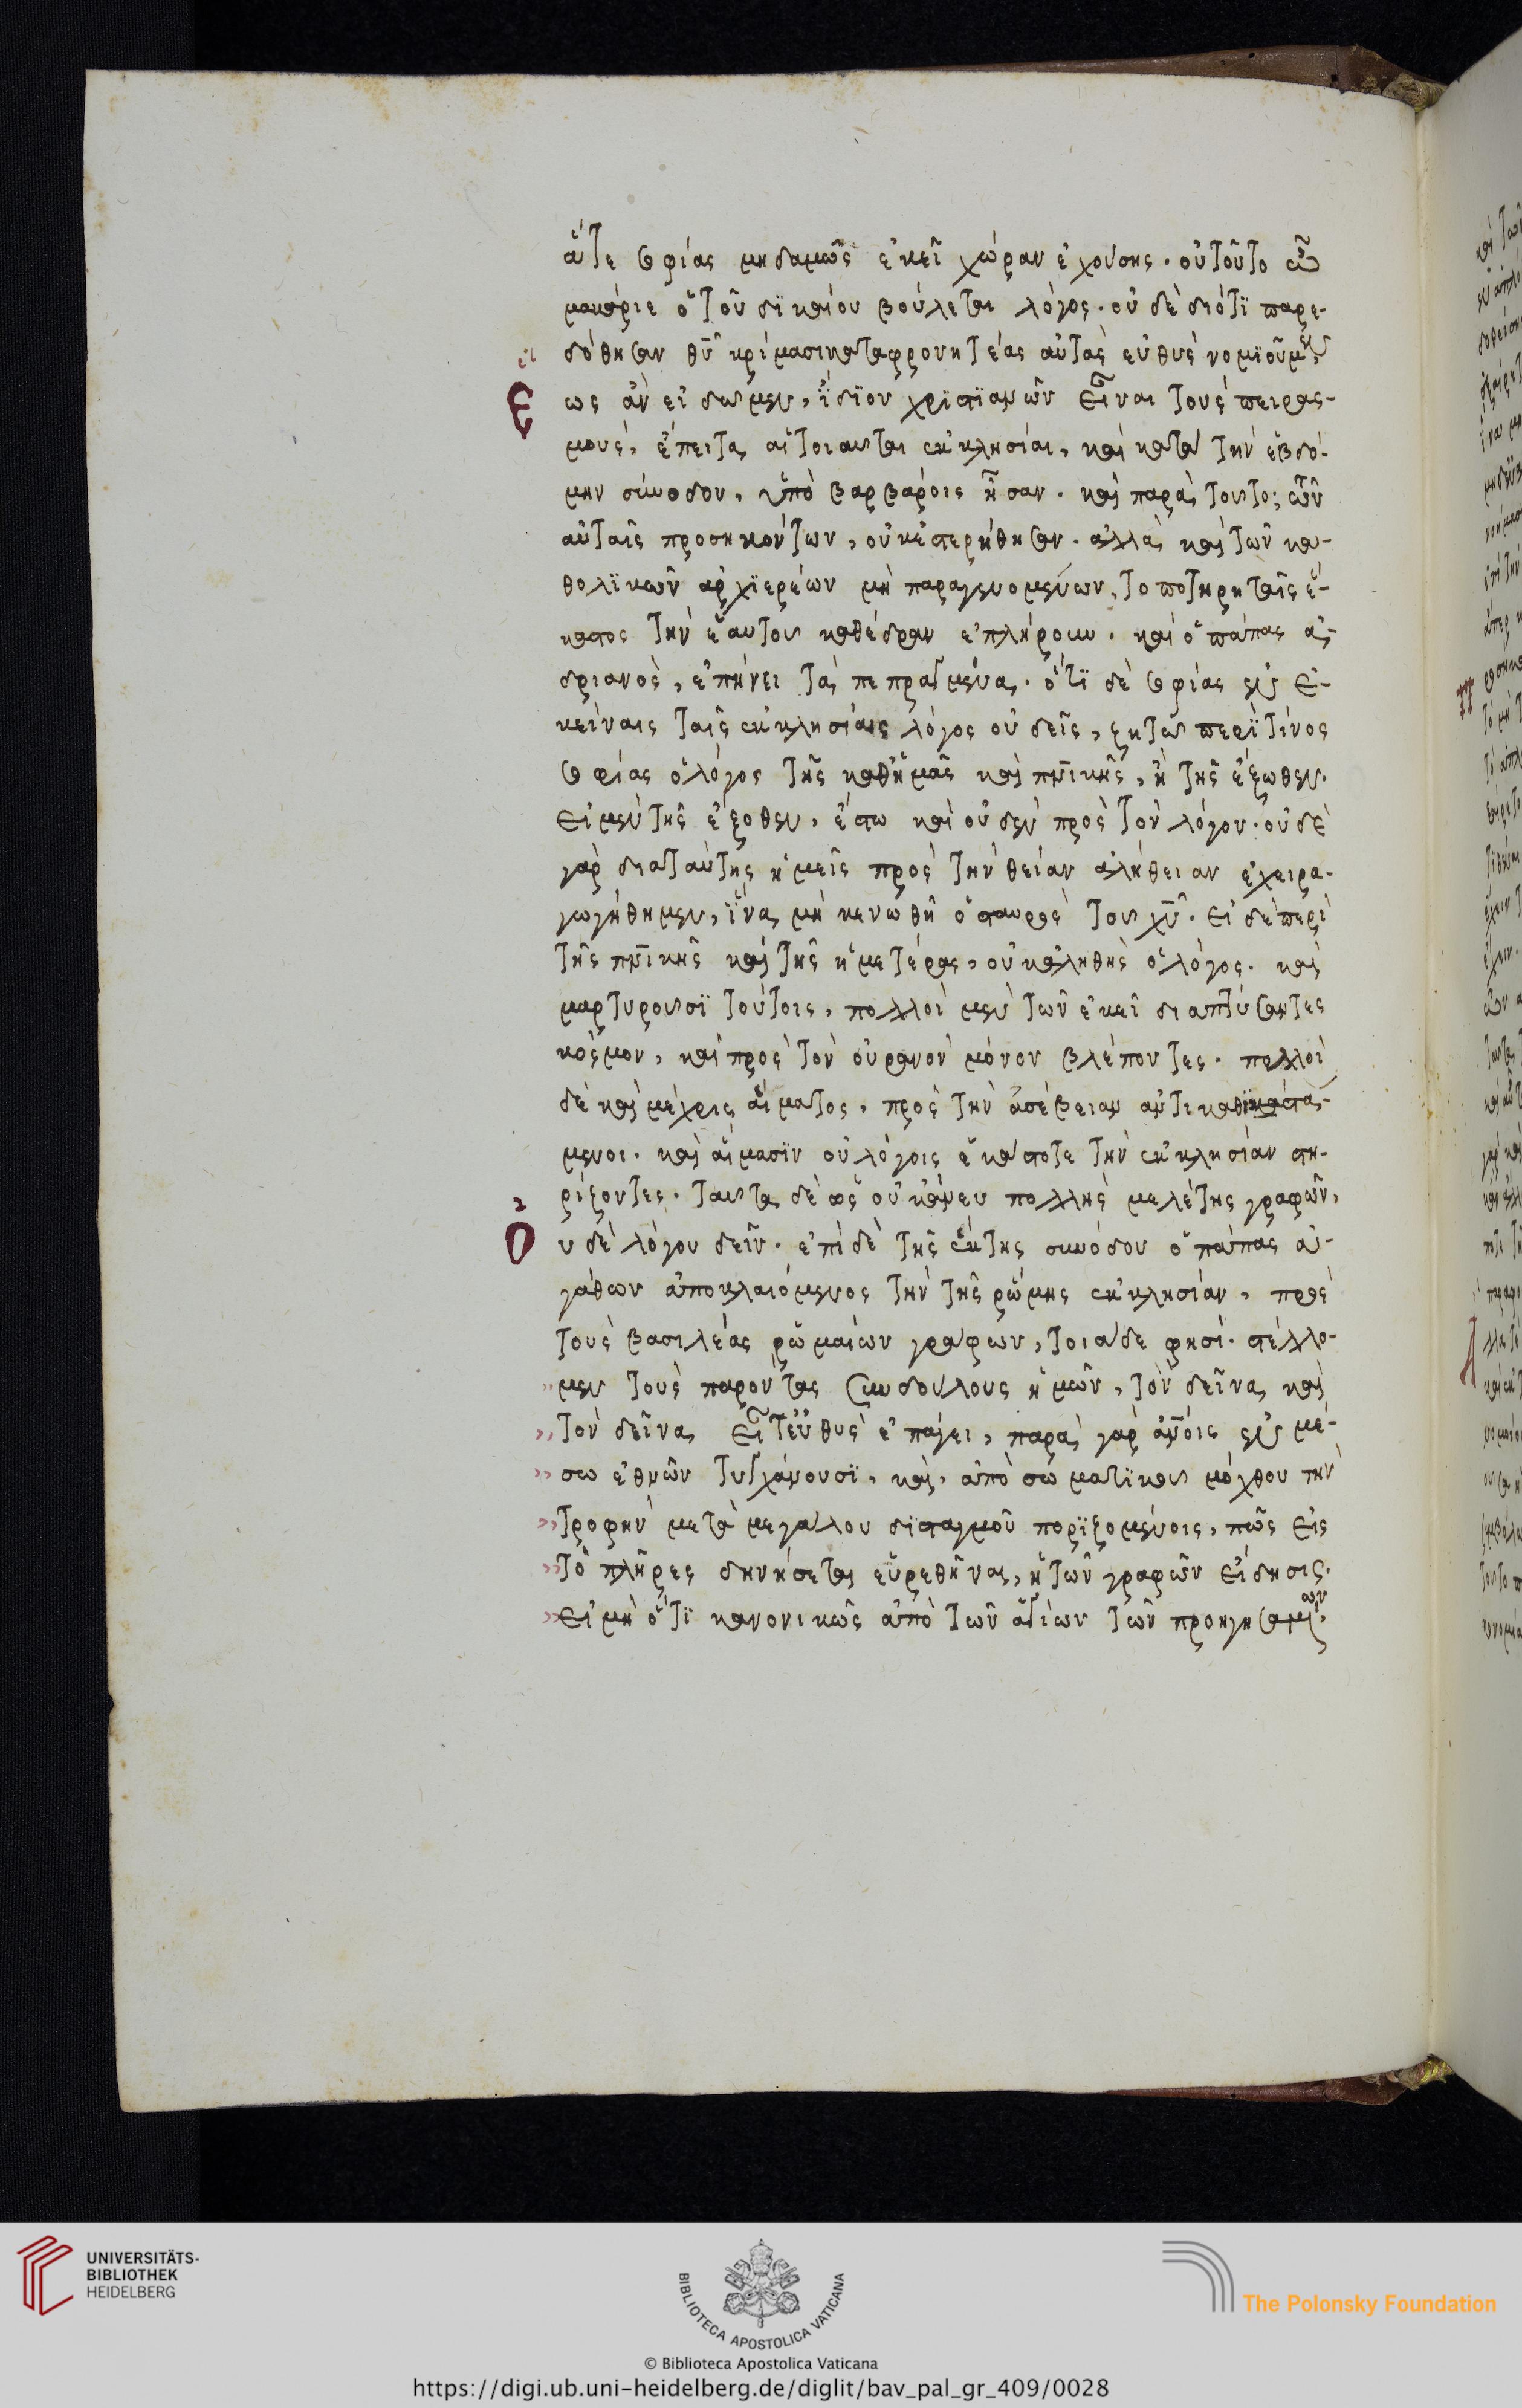 ἅτε σοφίας μηδαμῶς ἐκεῖ χώραν ἐχούσης. οὐ τοῦτο ὦ
μακάριε ὁ τοῦ δϊκαίου βούλεται λόγος. οὐ δὲ διότϊ παρε-
δόθησαν θῦ κρίμασι καταφρονητέας αὐτὰς εὐθὺς νομϊοῦμεν,
ε ως ἂν εἰδῶμεν, ἴδϊον χρϊστϊανῶν εἶναι τοὺς πειρασ-
μοὺς, ἔπειτα αἱ τοιαῦται ἐκκλησίαι, καὶ κατὰ τὴν ἑβδό-
μην σύνοδον, ὑπὸ βαρβάροις ἦσαν. καὶ παρὰ τοῦτο, ὧν
αὐταῖς προσηκόντων, οὐκ ἐστερήθησαν. ἀλλὰ καὶ τῶν κα-
θολϊκῶν ἀρχϊερέων μὴ παραγενομένων, τοποτηρηταῖς ἕ-
καστος τὴν ἑαυτοῦ καθέδραν ἐπλήρου. καὶ ὁ πάπας ἀ-
δριανὸς, ἐπῄνει τὰ πεπραγμένα. ὅτϊ δὲ σοφίας ἐν ἐ-
κείναις ταῖς ἐκκλησίαις λόγος οὐδεῖς, ζητῶ περῒ τίνος
σοφίας ὁ λόγος τῆς καθ' ἡμᾶς καὶ πνϊκῆς, ἢ τῆς ἔξωθεν.
εἰ μὲν τῆς ἔξοθεν, ἔστω καὶ οὐδὲν πρὸς τὸν λόγον. οὐδὲ
γὰρ διὰ ταύτης ἡμεῖς πρὸς τὴν θείαν ἀλήθειαν ἐχειρα-
γωγήθημεν, ἵνα μὴ κενωθῆ ὁ σταυρὸς τοῦ χῦ. εἰ δὲ περὶ
τῆς πνϊκῆς καὶ τῆς ἡμετέρας, οὐκ ἀληθὴς ὁ λόγος. καὶ
μαρτυροῦσϊ τούτοις, πολλοὶ μὲν τῶν ἐκεῖ διαπτύσαντες
κόσμον, καὶ πρὸς τὸν οὐρανὸν μόνον βλέποντες. πολλοὶ
δὲ καὶ μέχρις αἵματος, πρὸς τὴν ἀσέβειαν ἀντικαθϊκαστά-
μενοι. καὶ αἵμασϊν οὐ λόγοις ἑκάστοτε τὴν ἐκκλησίαν στη-
ρίζοντες. ταῦτα δὲ ὡς οὐκ ἄνευ πολλῆς μελέτης γραφῶν,
ο υ δὲ λόγου δεῖν. ἐπὶ δὲ τῆς ἕκτης συνόδου ὁ πάπας ἀ-
γάθων ἀποκλαιόμενος τὴν τῆς ῥώμης ἐκκλησίαν, πρὸς
τοὺς βασιλέας ῥωμαίων γράφων, τοιάδε φησί. στέλλο-
μεν τοὺς παρόντας συνδούλους ἡμῶν, τὸν δεῖνα καὶ
τὸν δεῖνα εἶτ' εὐθὺς ἐπάγει, παρὰ γὰρ ἀνοις ἐν μέ-
σω ἐθνῶν τυγχάνουσϊ, καὶ, ἀπὸ σωματϊκοῦ μόχθου τὴν
τροφὴν μετὰ μεγάλου δϊσταγμοῦ πορϊζομένοις, πῶς εἰς
τὸ πλῆρες δηνήσεται εὑρεθῆναι, ἡ τῶν γραφῶν εἴδησις.
εἰ μὴ ὅτϊ κανονικῶς ἀπὸ τῶν ἁγίων τῶν προηγησαμένων,
UNIVERSITÄTS-
BIBLIOTHEK
HEIDELBERG
BIBLIOTECA APOSTOLICA VATICANA
The Polonsky Foundation
© Biblioteca Apostolica Vaticana
https://digi.ub.uni-heidelberg.de/diglit/bav_pal_gr_409/0028